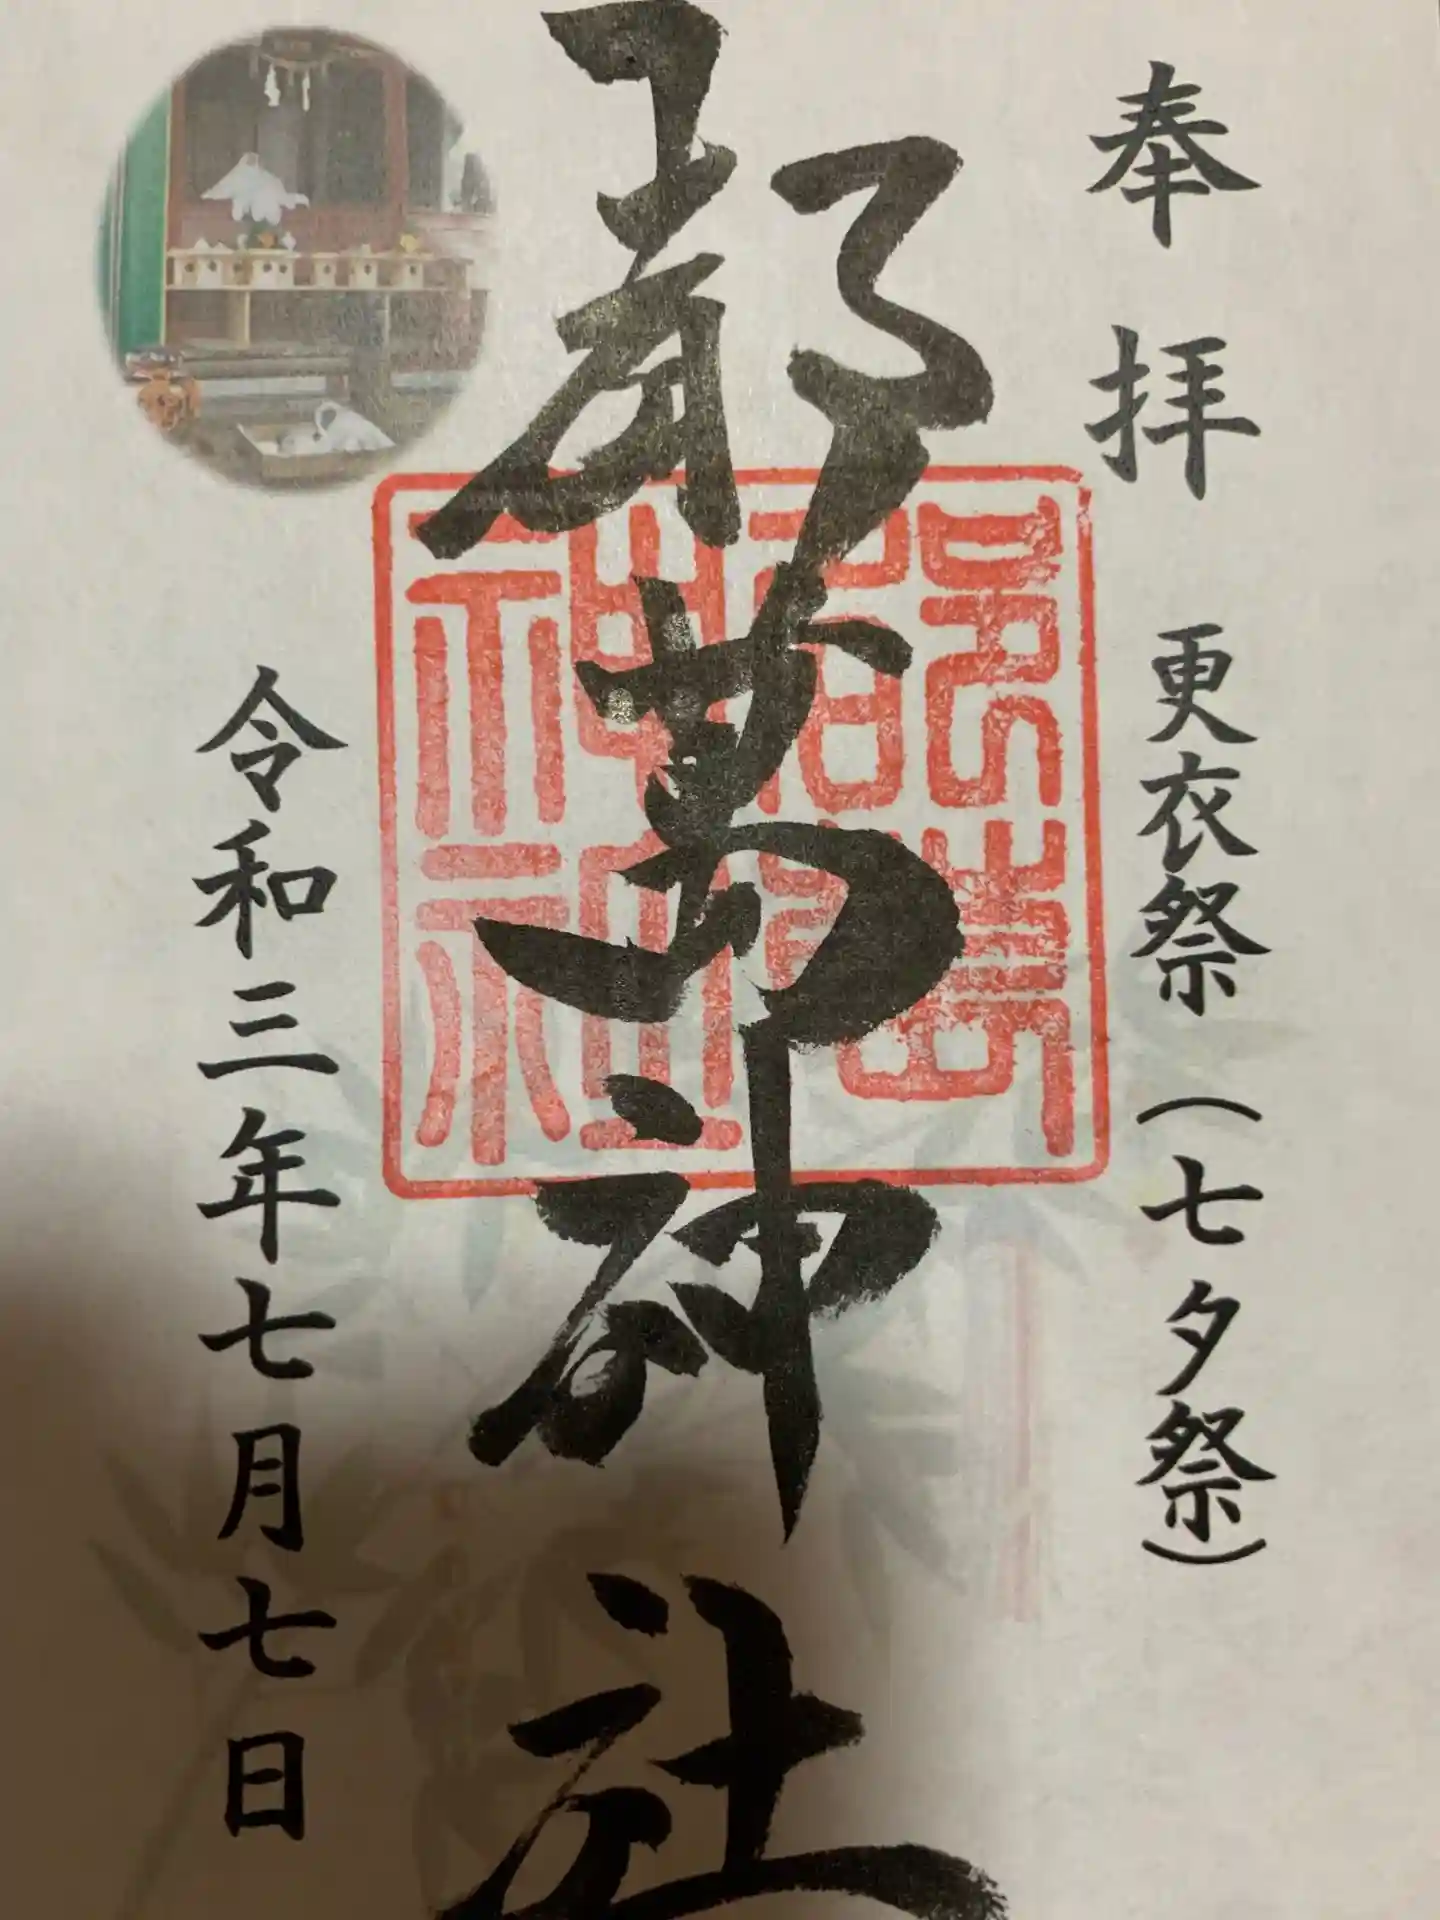 奉拝 更衣祭(七夕祭)
都萬神社
令和三年七月七日